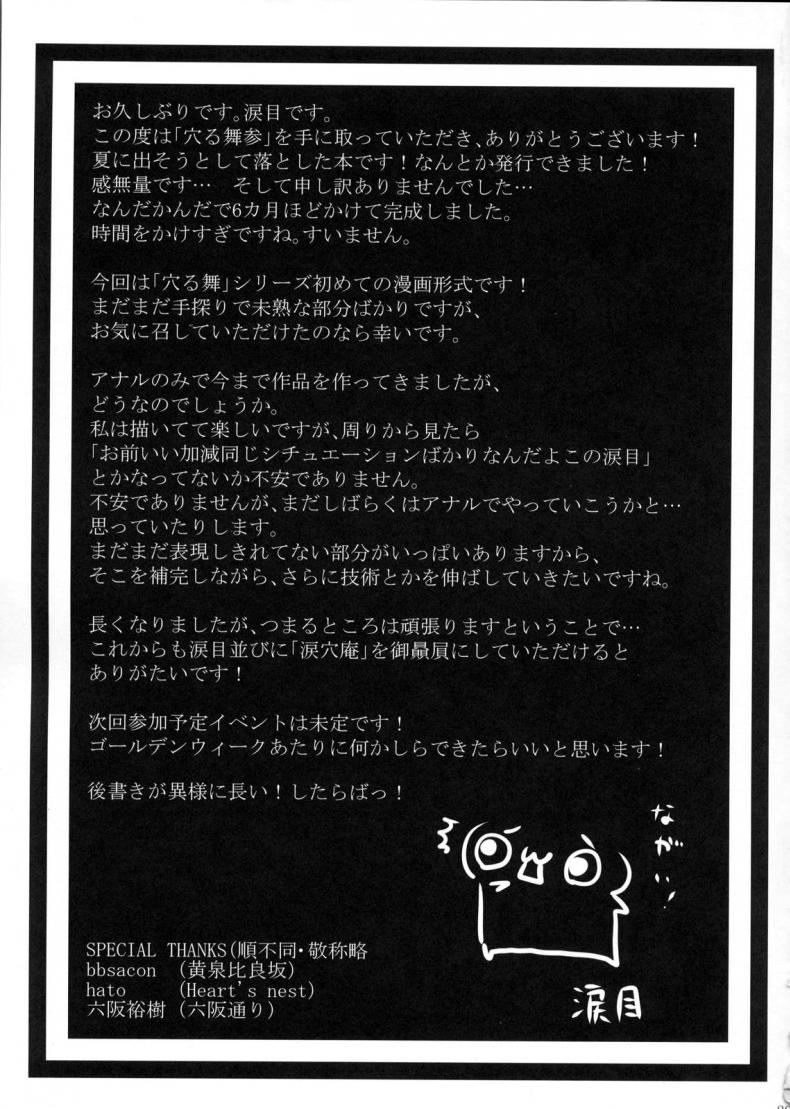 お久しぶりです。涙目です。
この度は「穴る舞参」を手に取っていただき、ありがとうございます！
夏に出そうとして落とした本です！なんとか発行できました！
感無量です…　そして申し訳ありませんでした…
なんだかんだで6カ月ほどかけて完成しました。
時間をかけすぎですね。すいません。
今回は「穴る舞」シリーズ初めての漫画形式です！
まだまだ手探りで未熟な部分ばかりですが、
お気に召していただけたのなら幸いです。
アナルのみで今まで作品を作ってきましたが、
どうなのでしょうか。
私は描いてて楽しいですが、周りから見たら
「お前いい加減同じシチュエーションばかりなんだよこの涙目」
とかなってないか不安でありません。
不安でありませんが、まだしばらくはアナルでやっていこうかと…
思っていたりします。
まだまだ表現しきれてない部分がいっぱいありますから、
そこを補完しながら、さらに技術とかを伸ばしていきたいですね。
長くなりましたが、つまるところは頑張りますということで…
これからも涙目並びに「涙穴庵」を御贔屓にしていただけると
ありがたいです！
次回参加予定イベントは未定です！
ゴールデンウィークあたりに何かしらできたらいいと思います！
後書きが異様に長い！したらばっ！
ながい！
SPECIAL THANKS(順不同・敬称略
bbsacon　(黄泉比良坂)
hato　(Heart's nest)
六阪裕樹　(六阪通り)
涙目